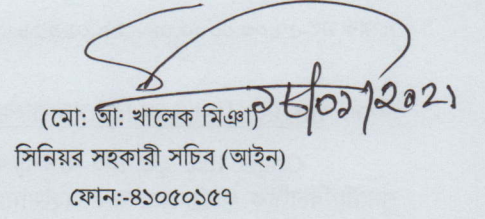 ২৮/০১/২০২১
(মো: আ: খালেক মিঞা)
সিনিয়র সহকারী সচিব (আইন)
ফোন:-৪১০৫০১৫৭